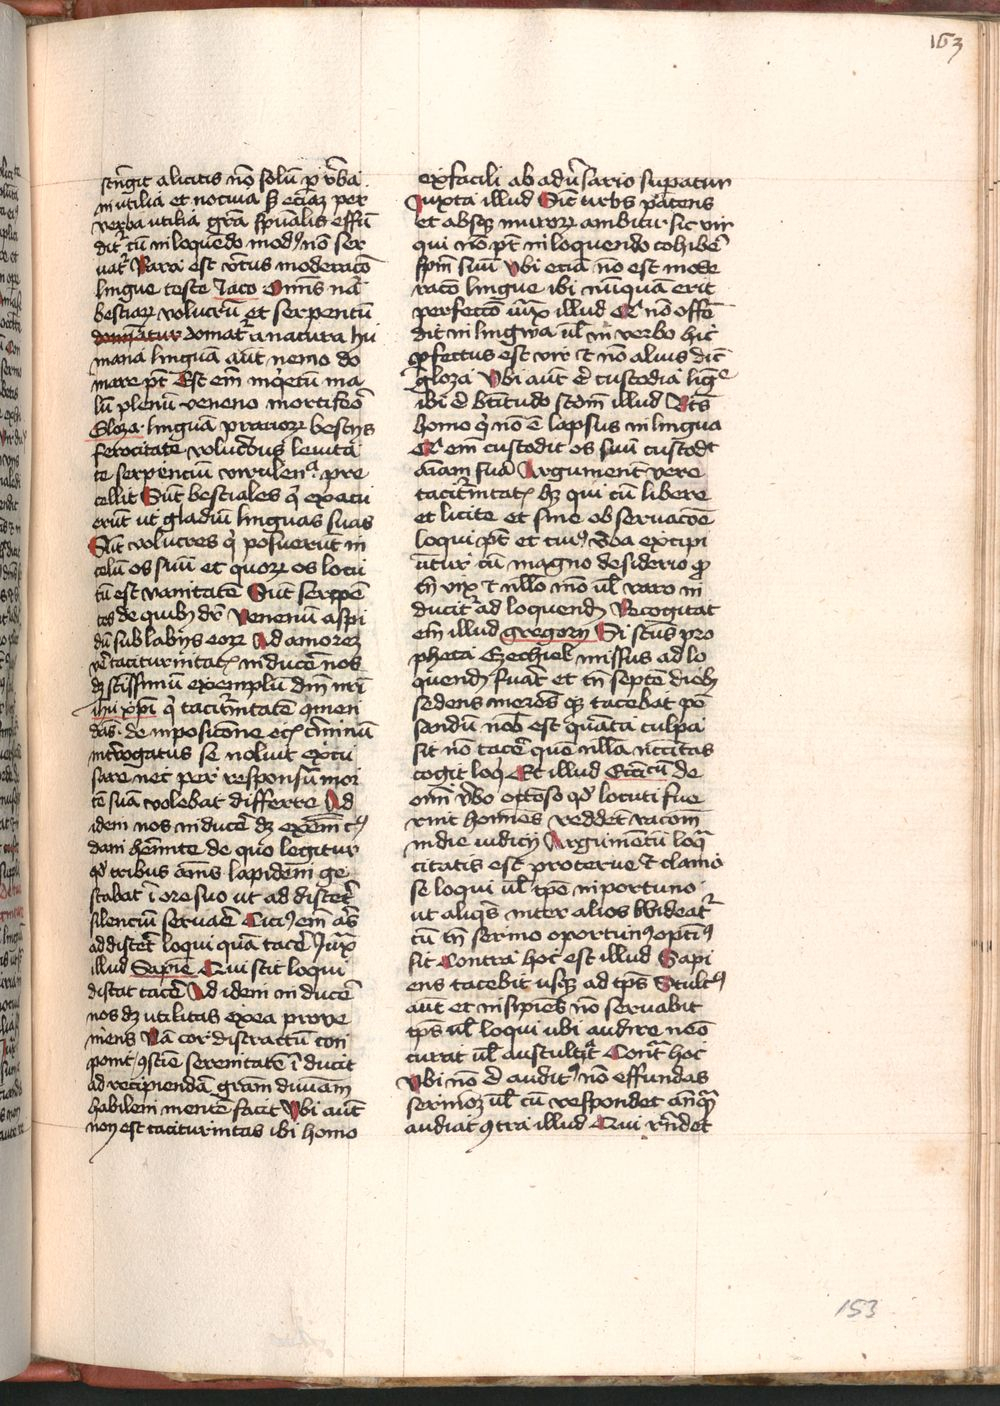 153
stringit a licitis nō solū ꝑ v̄ba
inutilia et nociua sꝫ eciaꝫ per
verba utilia grā spūalis effū
ditr̄ cū in loquēdo modꝰ nō ser
uatr̄ Rara est v̄tus moderacō
lingue teste Jaco Omīs nā
bestiaꝝ volucrū et serpentū
domātur domatr̄ a natura hu
mana linguā aūt nemo do
mare pt̄ Est em̄ inq̇etū ma
lū plenū veneno mortifeō
Gloza linguā prauoꝝ bestijs
ferocitate volucribus leuita
te serpenciū virulenᵃ pre
cellit Sūt bestiales q̇ exacu
erūt ut gladiū linguas suas
Sūt volucres q̇ posuerūt in
celū os suū et quoꝝ os locu
tū est vanitatē Sūt serpē
tes de quibꝫ dr̄ Venenū aspi
dū sub labijs eoꝝ Ad amoreꝫ
v̄e taciturnitatꝭ inducē nos
dꝫ sc̄issimū exemplū dn̄i nr̄i
ihū xp̄i q̇ tacitr̄nitatē ꝯmen
dās de inposicōne ecꝭ c̄minū
int̄rogatus se noluit excu
sare nec per responsū mor
tē suā volebat differre Ad
idem nos inducē dꝫ exēm
dani hēmite de quo legitur
qd̓ tribus annis lapidem ge
stabat ī ore suo ut ad discēt̄
silenciū seruaē Cicꝰ em̄ aīs
addiscēt̄ loqui quā tacē Juxᵃ
illud Sapiēs Qui scit loqui
discat tacē Ad idem inducē
nos dꝫ utilitas ex ea proue
niens Nā cor distractū con
ponit ꝯsciē serenitatē īducit
ad recipiendā gram diuiam
habilem mentē facit Vbi aūt
non est taciturnitas ibi homo
ex facili ab adu̓sario supatur
Juxta illud Sic urbs patens
et absqꝫ muroꝝ ambitu sic vir
qui nō pt̄ in loquendo cohibē
spm̄ suū Vbi etiā nō est mode
racō lingue ibi nūquā erit
perfectō iuxᵃ illud Qͥ nō offē
dit in lingwa ul̄ in verbo hic
ꝑfectus est vir et nō alius dic̄
gloza Vbi aūt ē custodia ligᵉ
ibi ē btitudo scdm̄ illud Bt̄s
homo q̇ nō ē lapsus in lingua
Qͥ em̄ custodit os suū custodit
aīam suā Argumentū vere
tacitr̄nitatꝭ dꝫ qui cū libere
et licite et sine obseruacōe
loqui pt̄ et cuiꝰ v̄ba excipi
ūtur cū magno desiderio ꝓ
tn̄ vix et nllo mō ul̄ raro in
ducitr̄ ad loquendꝫ Recogitat
em̄ illud gregorij Si sc̄us pro
pheta Ezechiel missus ad lo
quendꝫ fuāt et tn̄ septē diebꝫ
sedens merēs qꝫ tacebat pō
sandū nob̄ est quāta culpa
sit nō tacē quē nlla nccītas
cogit loq̇ Et illud Ecc̄icū de
om̄i v̄bo occōso qd̓ locuti fue
rint homēs reddet racom̄
in die iudicij Argumētū loqᵃ
citatis est proterue et clamō
se loqui ul̄ tpe inportuno
ut aliqs̄ inter alios ibideatr̄
cū tn̄ sermo oportunꝰ optiꝰ
sit Contra hoc est illud Sapi
ens tacebit usqꝫ ad tps̄ Stultꝰ
aūt et insipiēs nō seruabit
tps̄ ul̄ loqui ubi audire neō
curat ul̄ auscultat̄ Contᵃ hoc
Vbi nō ē auditꝰ nō effundas
sermoꝫ ul̄ cū respondet anqᵃ
audiat ꝯtra illud Qui rn̄det
153